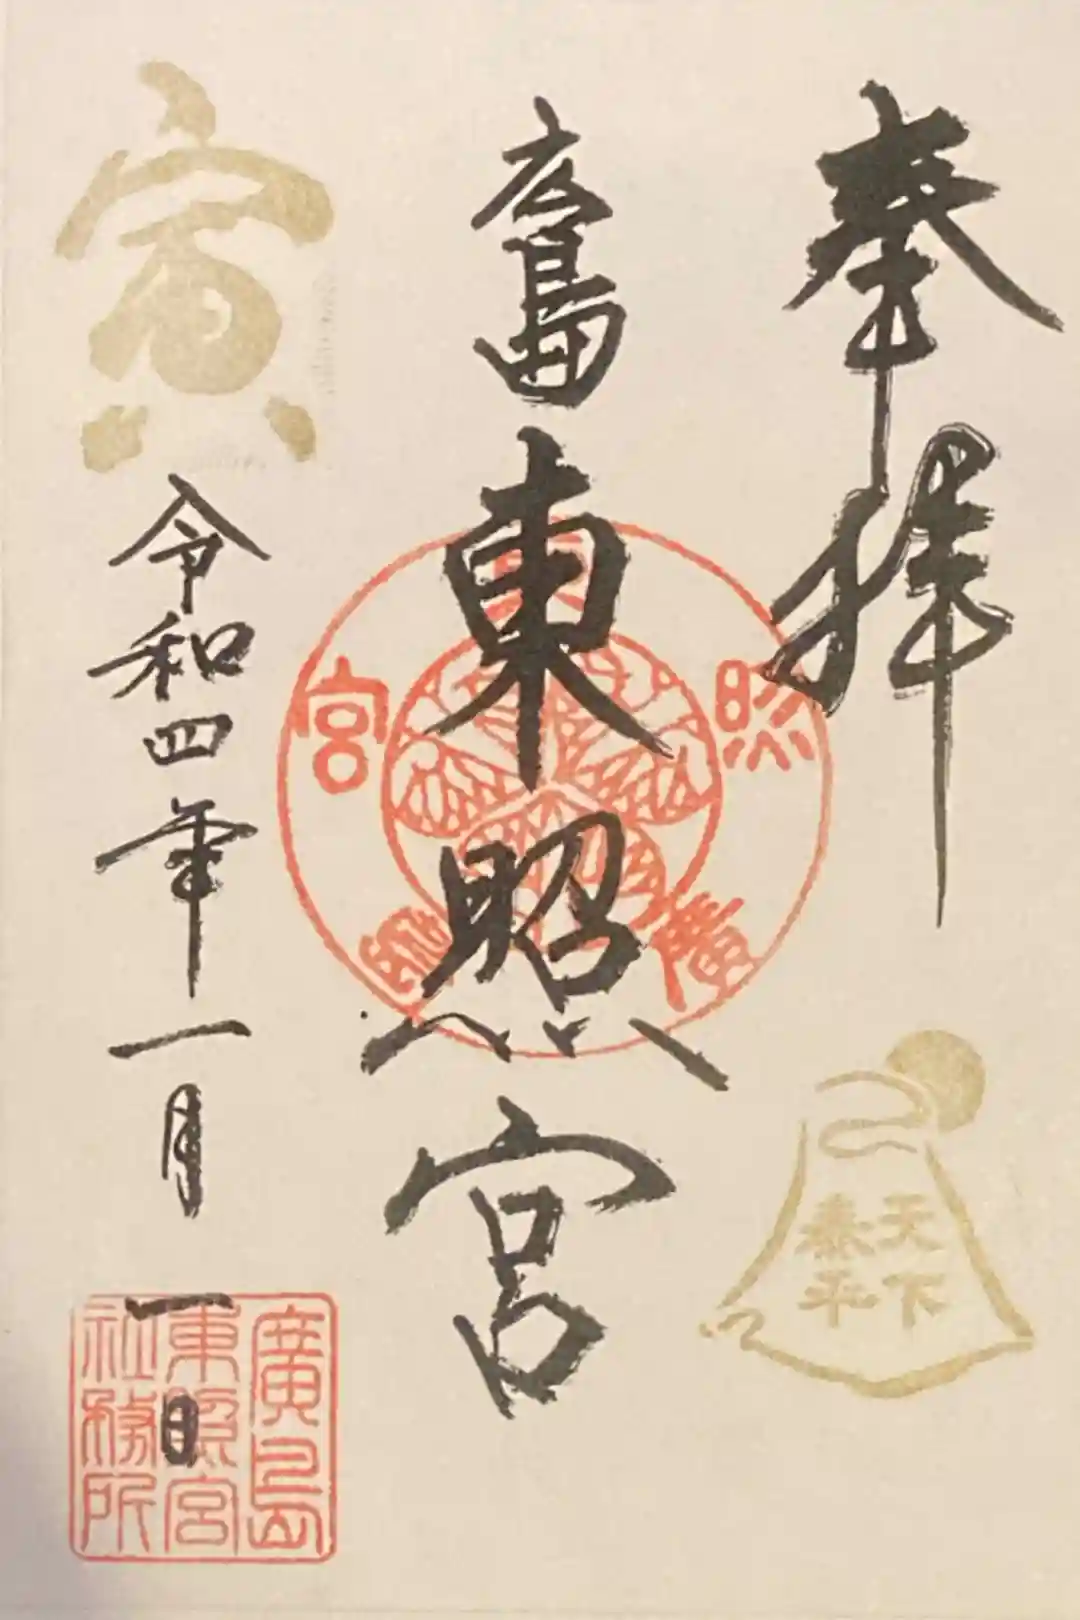 奉拝
天下
泰平
廣島
東照宮
東照宮廣島
令和四年一月一日
寅
廣島
東照宮
社務所